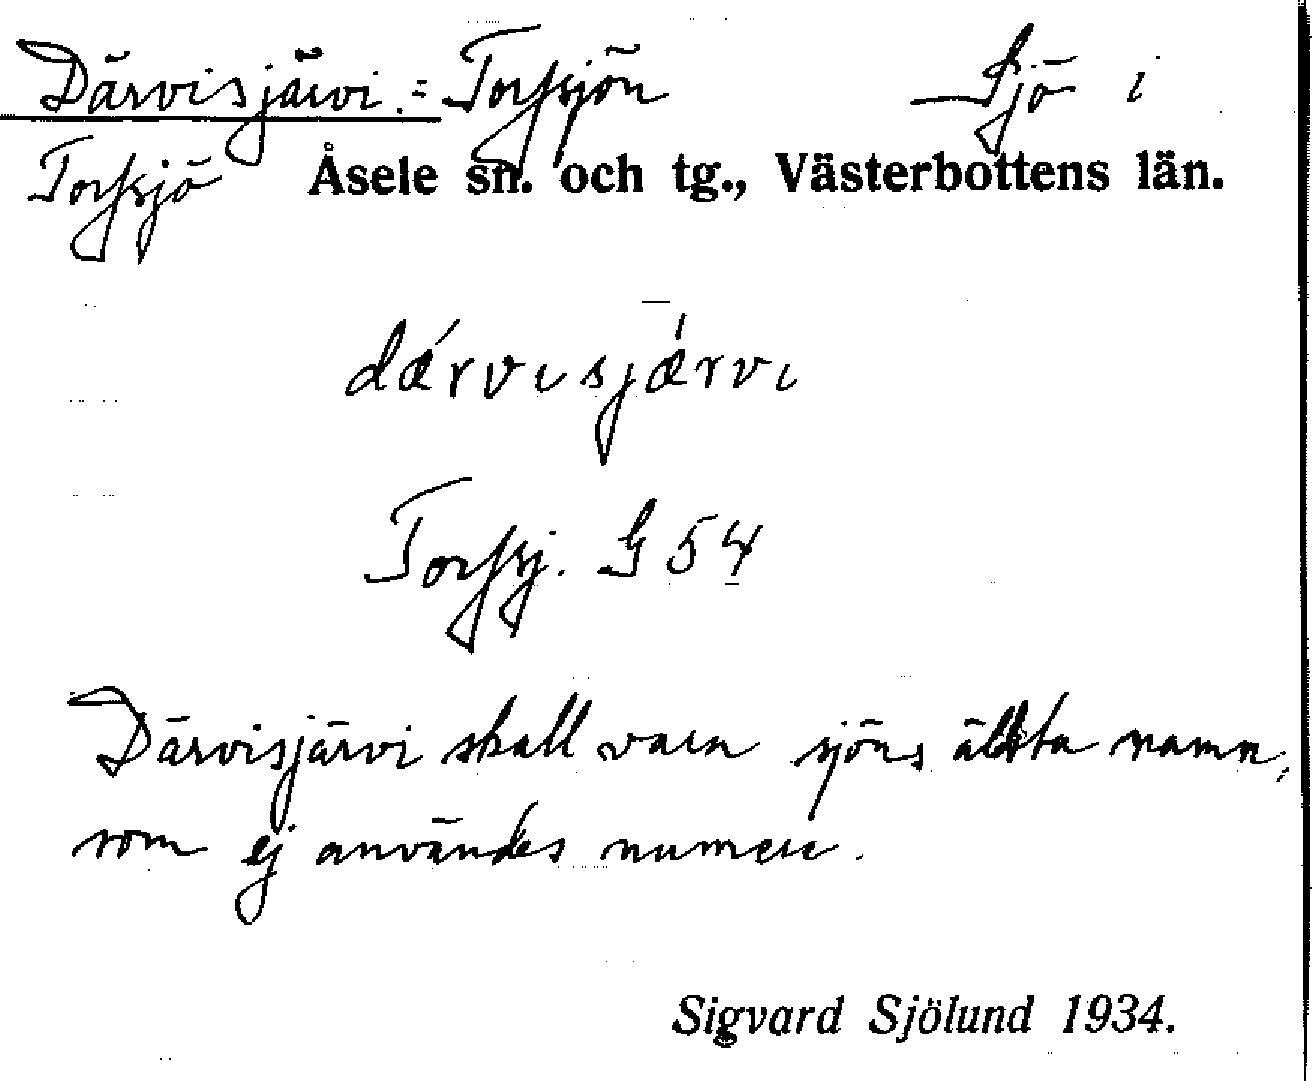 Därvisjärvi = Torfsjön Sjö i
Torfsjö Åsele sn. och tg., Västerbottens län.
dǽrvɩsjǽrvɩ
Torfsj. G 54
Därvisjärvi skall vara sjöns äldsta namn,
som ej användes numera.
Sigvard Sjölund 1934.